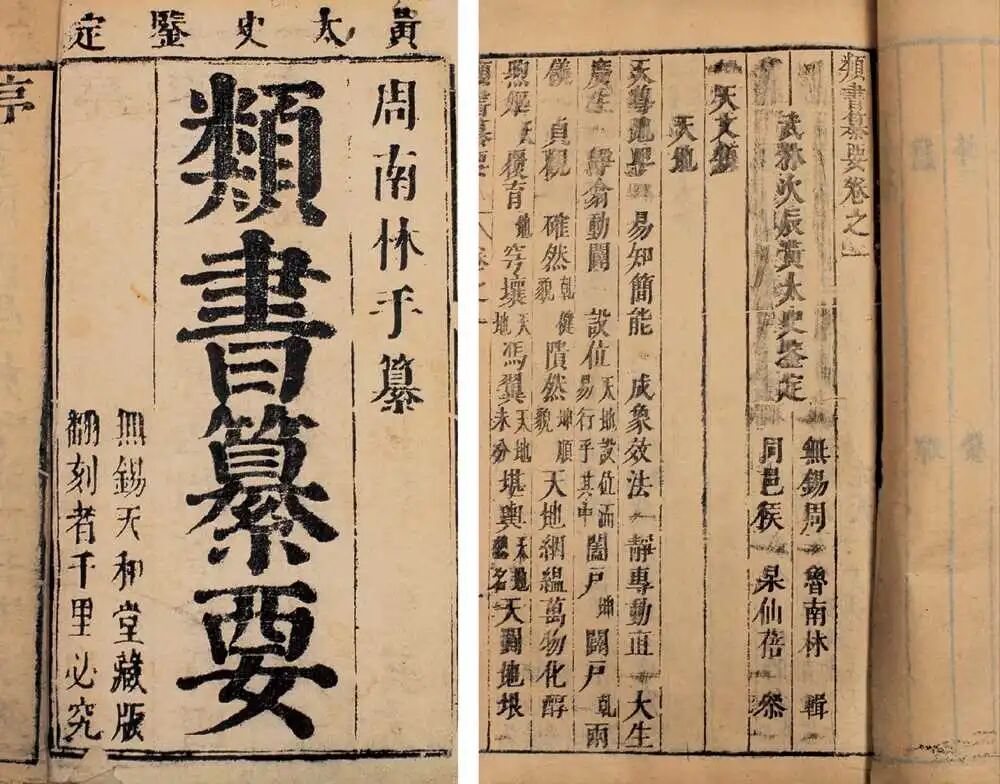 黃太史鑒定
周南林手纂
類書纂要
無錫天和堂藏版
翻刻者千里必究
序
類書纂要卷之一
無錫周 魯南林 輯
武林次辰黃太史鑒定
同邑侯 杲仙蓓 叅
天文類
天地
天尊地卑 易知簡能 成象效法 靜專動直 大生
廣生 靜翕動闢 設位天地設位而易行乎其中 闔戶坤 闢戶乾 兩
儀 貞觀 確然乾健貌 隤然坤順貌 天地絪縕萬物化醇
煦嫗天覆育地 穹壤天地 馮翼天地未分 堪輿天地總名 天闢地垠
類書纂要 卷之一